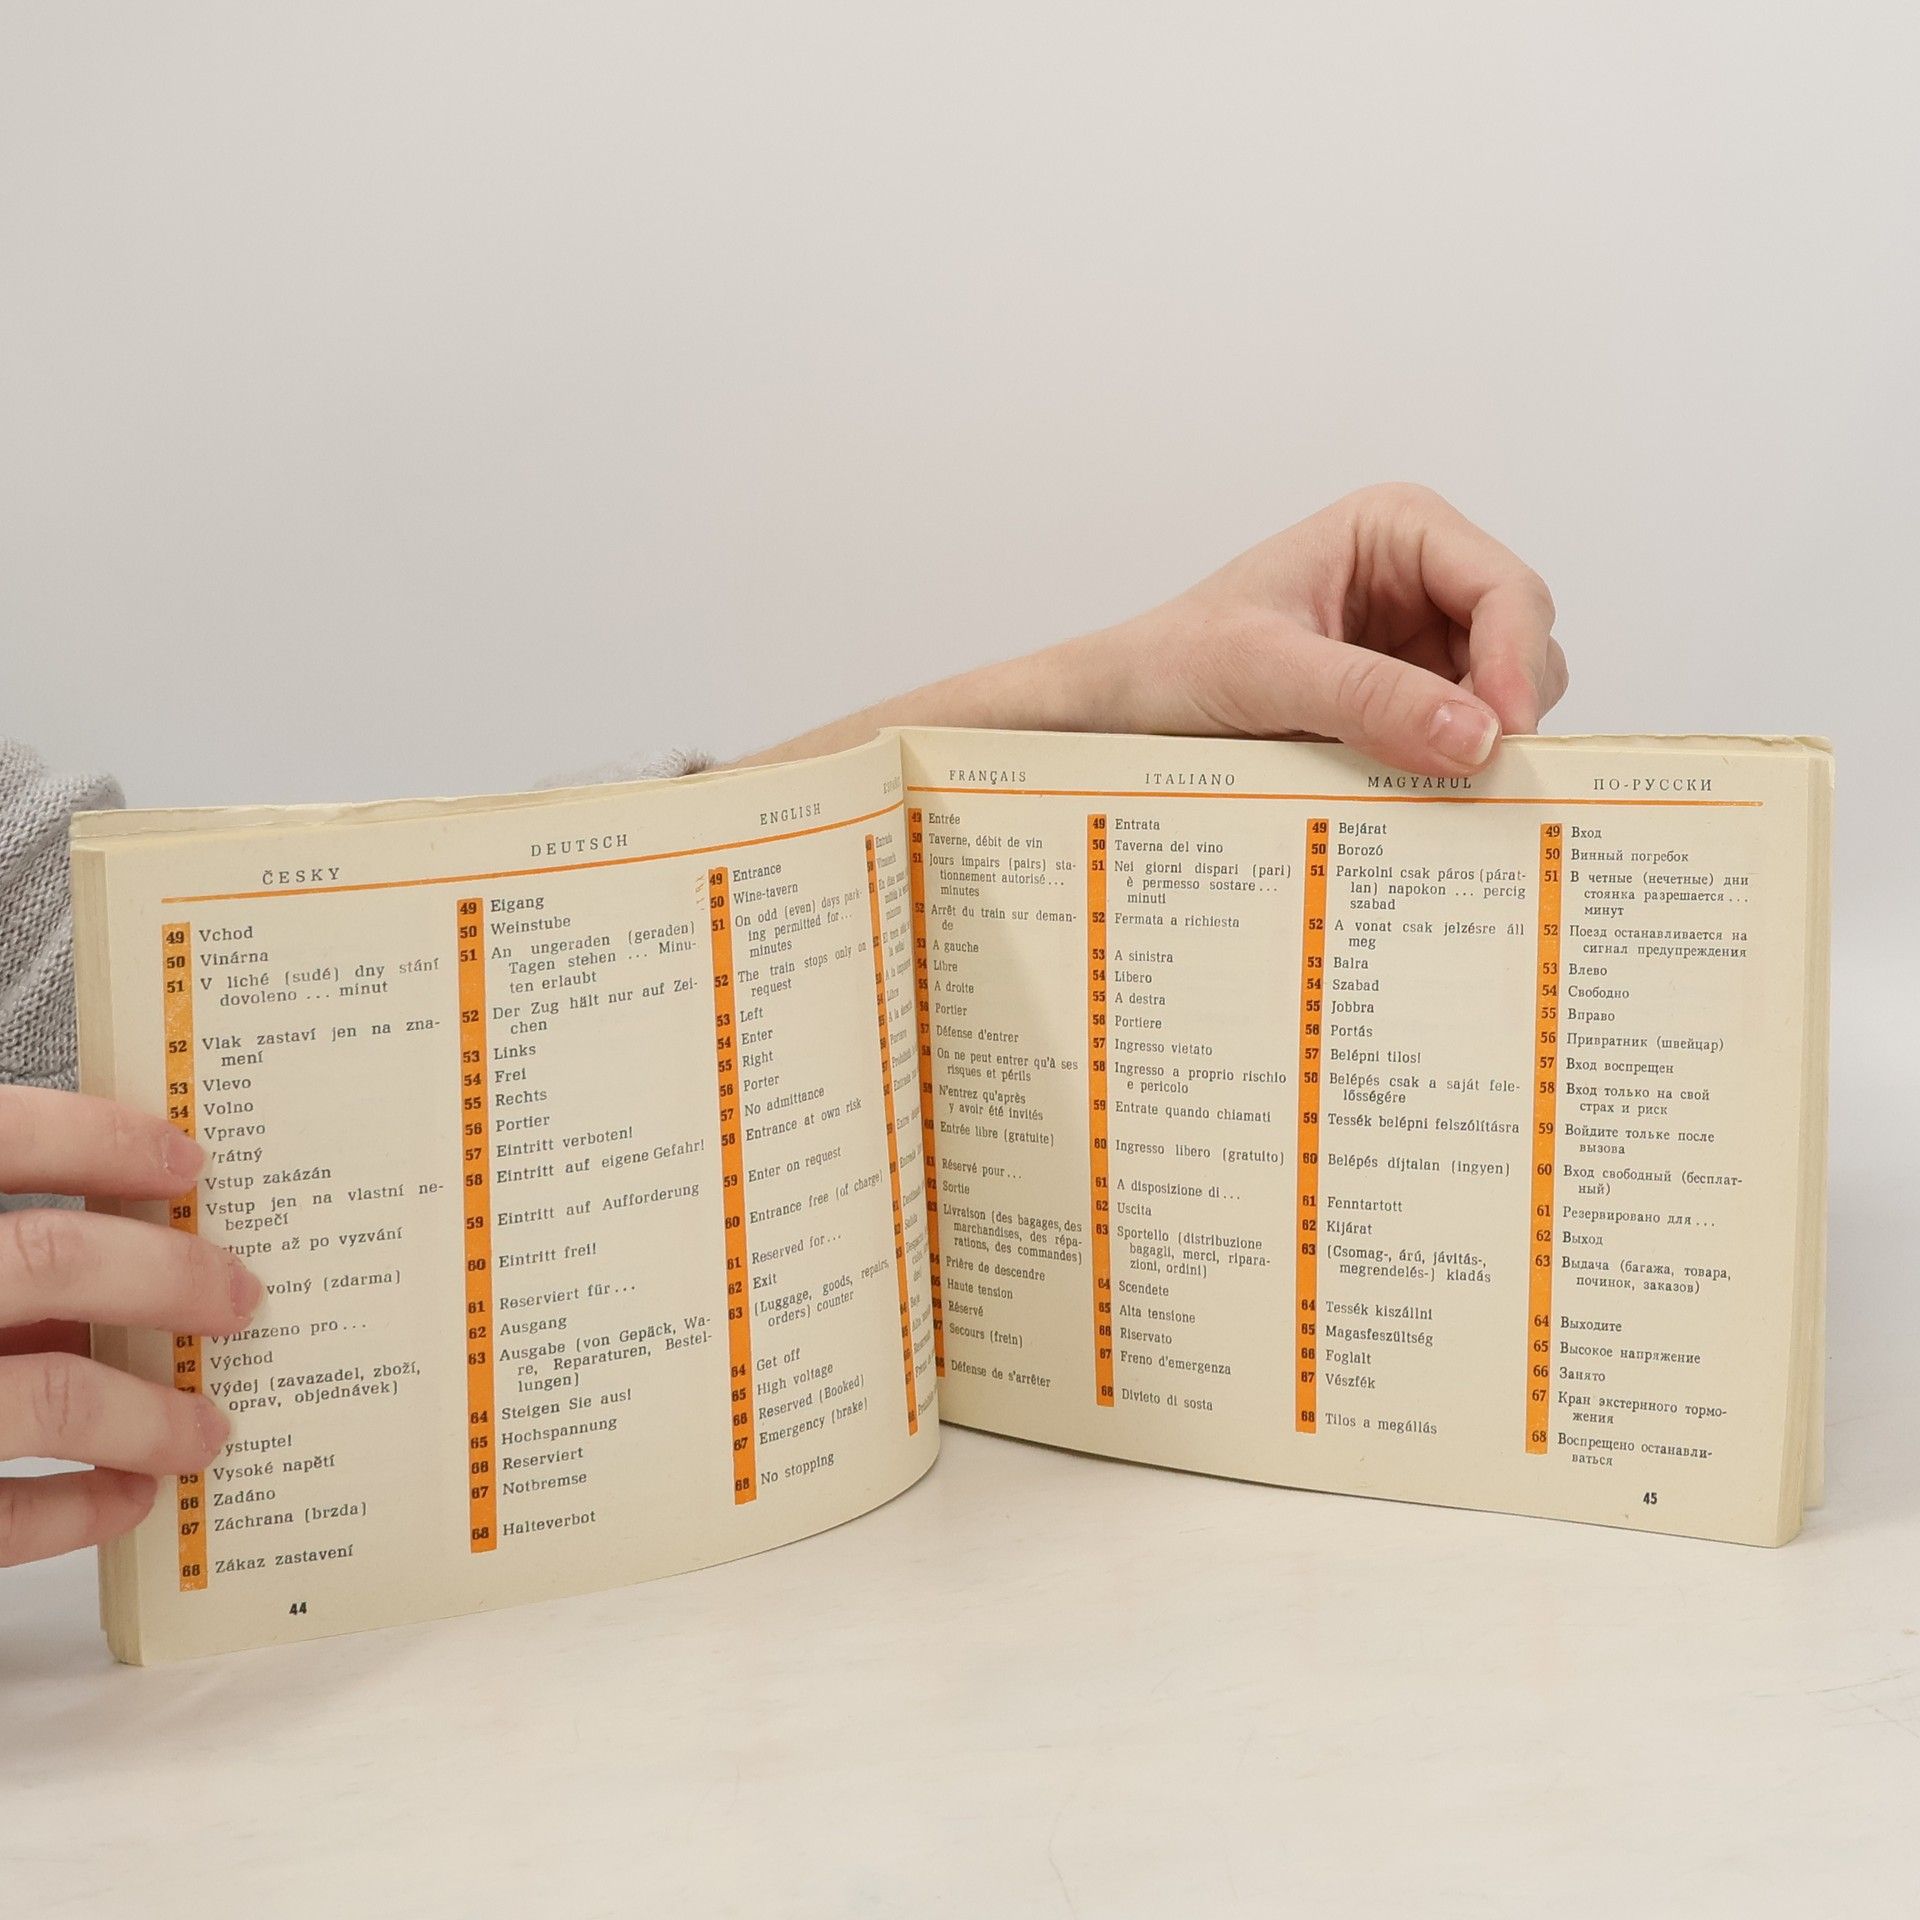 ČESKY
49 Vchod
50 Vinárna
51 V liché (sudé) dny stání
dovoleno ... minut
52 Vlak zastaví jen na zna-
mení
53 Vlevo
54 Volno
Vpravo
Vrátný
Vstup zakázán
58 Vstup jen na vlastní ne-
bezpečí
až po vyzvání
volný (zdarma)
61 Vyhrazeno pro...
62 Východ
Výdej (zavazadel, zboží,
oprav, objednávek)
65 Vysoké napětí
66 Zadáno
67 Záchrana (brzda)
68 Zákaz zastavení
44
DEUTSCH
49 Eigang
50 Weinstube
51 An ungeraden (geraden)
Tagen stehen ... Minu-
ten erlaubt
52 Der Zug hält nur auf Zei-
chen
53 Links
54 Frei
55 Rechts
56 Portier
57 Eintritt verboten!
58 Eintritt auf eigene Gefahr!
59 Eintritt auf Aufforderung
60 Eintritt frei!
61 Reserviert für...
62 Ausgang
63 Ausgabe (von Gepäck, Wa-
re, Reparaturen, Bestel-
lungen)
64 Steigen Sie aus!
65 Hochspannung
66 Reserviert
67 Notbremse
68 Halteverbot
ENGLISH
49 Entrance
50 Wine-tavern
51 On odd (even) days park-
ing permitted for...
minutes
52 The train stops only on
request
53 Left
54 Enter
55 Right
56 Porter
57 No admittance
58 Entrance at own risk
59 Enter on request
60 Entrance free (of charge)
61 Reserved for...
62 Exit
63 (Luggage, goods, repairs,
orders) counter
64 Get off
65 High voltage
66 Reserved (Booked)
67 Emergency (brake)
68 No stopping
FRANÇAIS
49 Entrée
50 Taverne, débit de vin
51 Jours impairs (pairs) sta-
tionnement autorisé...
minutes
52 Arrêt du train sur deman-
de
53 A gauche
54 Libre
55 A droite
56 Portier
57 Défense d'entrer
58 On ne peut entrer qu'à ses
risques et périls
59 N'entrez qu'après
y avoir été invités
60 Entrée libre (gratuite)
61 Réservé pour...
62 Sortie
63 Livraison (des bagages, des
marchandises, des répa-
rations, des commandes)
64 Prière de descendre
65 Haute tension
66 Réservé
67 Secours (frein)
68 Défense de s'arrêter
ITALIANO
49 Entrata
50 Taverna del vino
51 Nei giorni dispari (pari)
è permesso sostare...
minuti
52 Fermata a richiesta
53 A sinistra
54 Libero
55 A destra
56 Portiere
57 Ingresso vietato
58 Ingresso a proprio rischio
e pericolo
59 Entrate quando chiamati
60 Ingresso libero (gratuito)
61 A disposizione di...
62 Uscita
63 Sportello (distribuzione
bagagli, merci, ripara-
zioni, ordini)
64 Scendete
65 Alta tensione
66 Riservato
67 Freno d'emergenza
68 Divieto di sosta
MAGYARUL
49 Bejárat
50 Borozó
51 Parkolni csak páros (párat-
lan) napokon ... percig
szabad
52 A vonat csak jelzésre áll
meg
53 Balra
54 Szabad
55 Jobbra
56 Portás
57 Belépni tilos!
58 Belépés csak a saját fele-
lősségére
59 Tessék belépni felszólításra
60 Belépés díjtalan (ingyen)
61 Fenntartott
62 Kijárat
63 (Csomag-, árú, jávitás-,
megrendelés-) kiadás
64 Tessék kiszállni
65 Magasfeszültség
66 Foglalt
67 Vészfék
68 Tilos a megállás
ПО-РУССКИ
49 Вход
50 Винный погребок
51 В четные (нечетные) дни
стоянка разрешается...
минут
52 Поезд останавливается на
сигнал предупреждения
53 Влево
54 Свободно
55 Вправо
56 Привратник (швейцар)
57 Вход воспрещен
58 Вход только на свой
страх и риск
59 Войдите только после
вызова
60 Вход свободный (бесплат-
ный)
61 Резервировано для...
62 Выход
63 Выдача (багажа, товара,
починок, заказов)
64 Выходите
65 Высокое напряжение
66 Занято
67 Кран экстернного тормо-
жения
68 Воспрещено останавли-
ваться
45